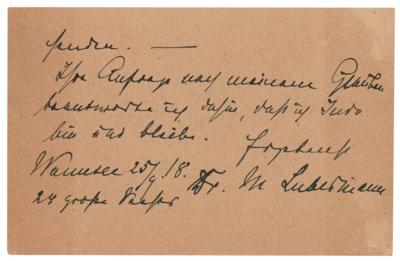 senden. —
Ihre Anfrage nach meinem Glauben
beantworte ich dahin, daß ich Jude
bin und bleibe. Ergebenst
Wannsee 25/9 18. Dr. M Liebermann
24 große